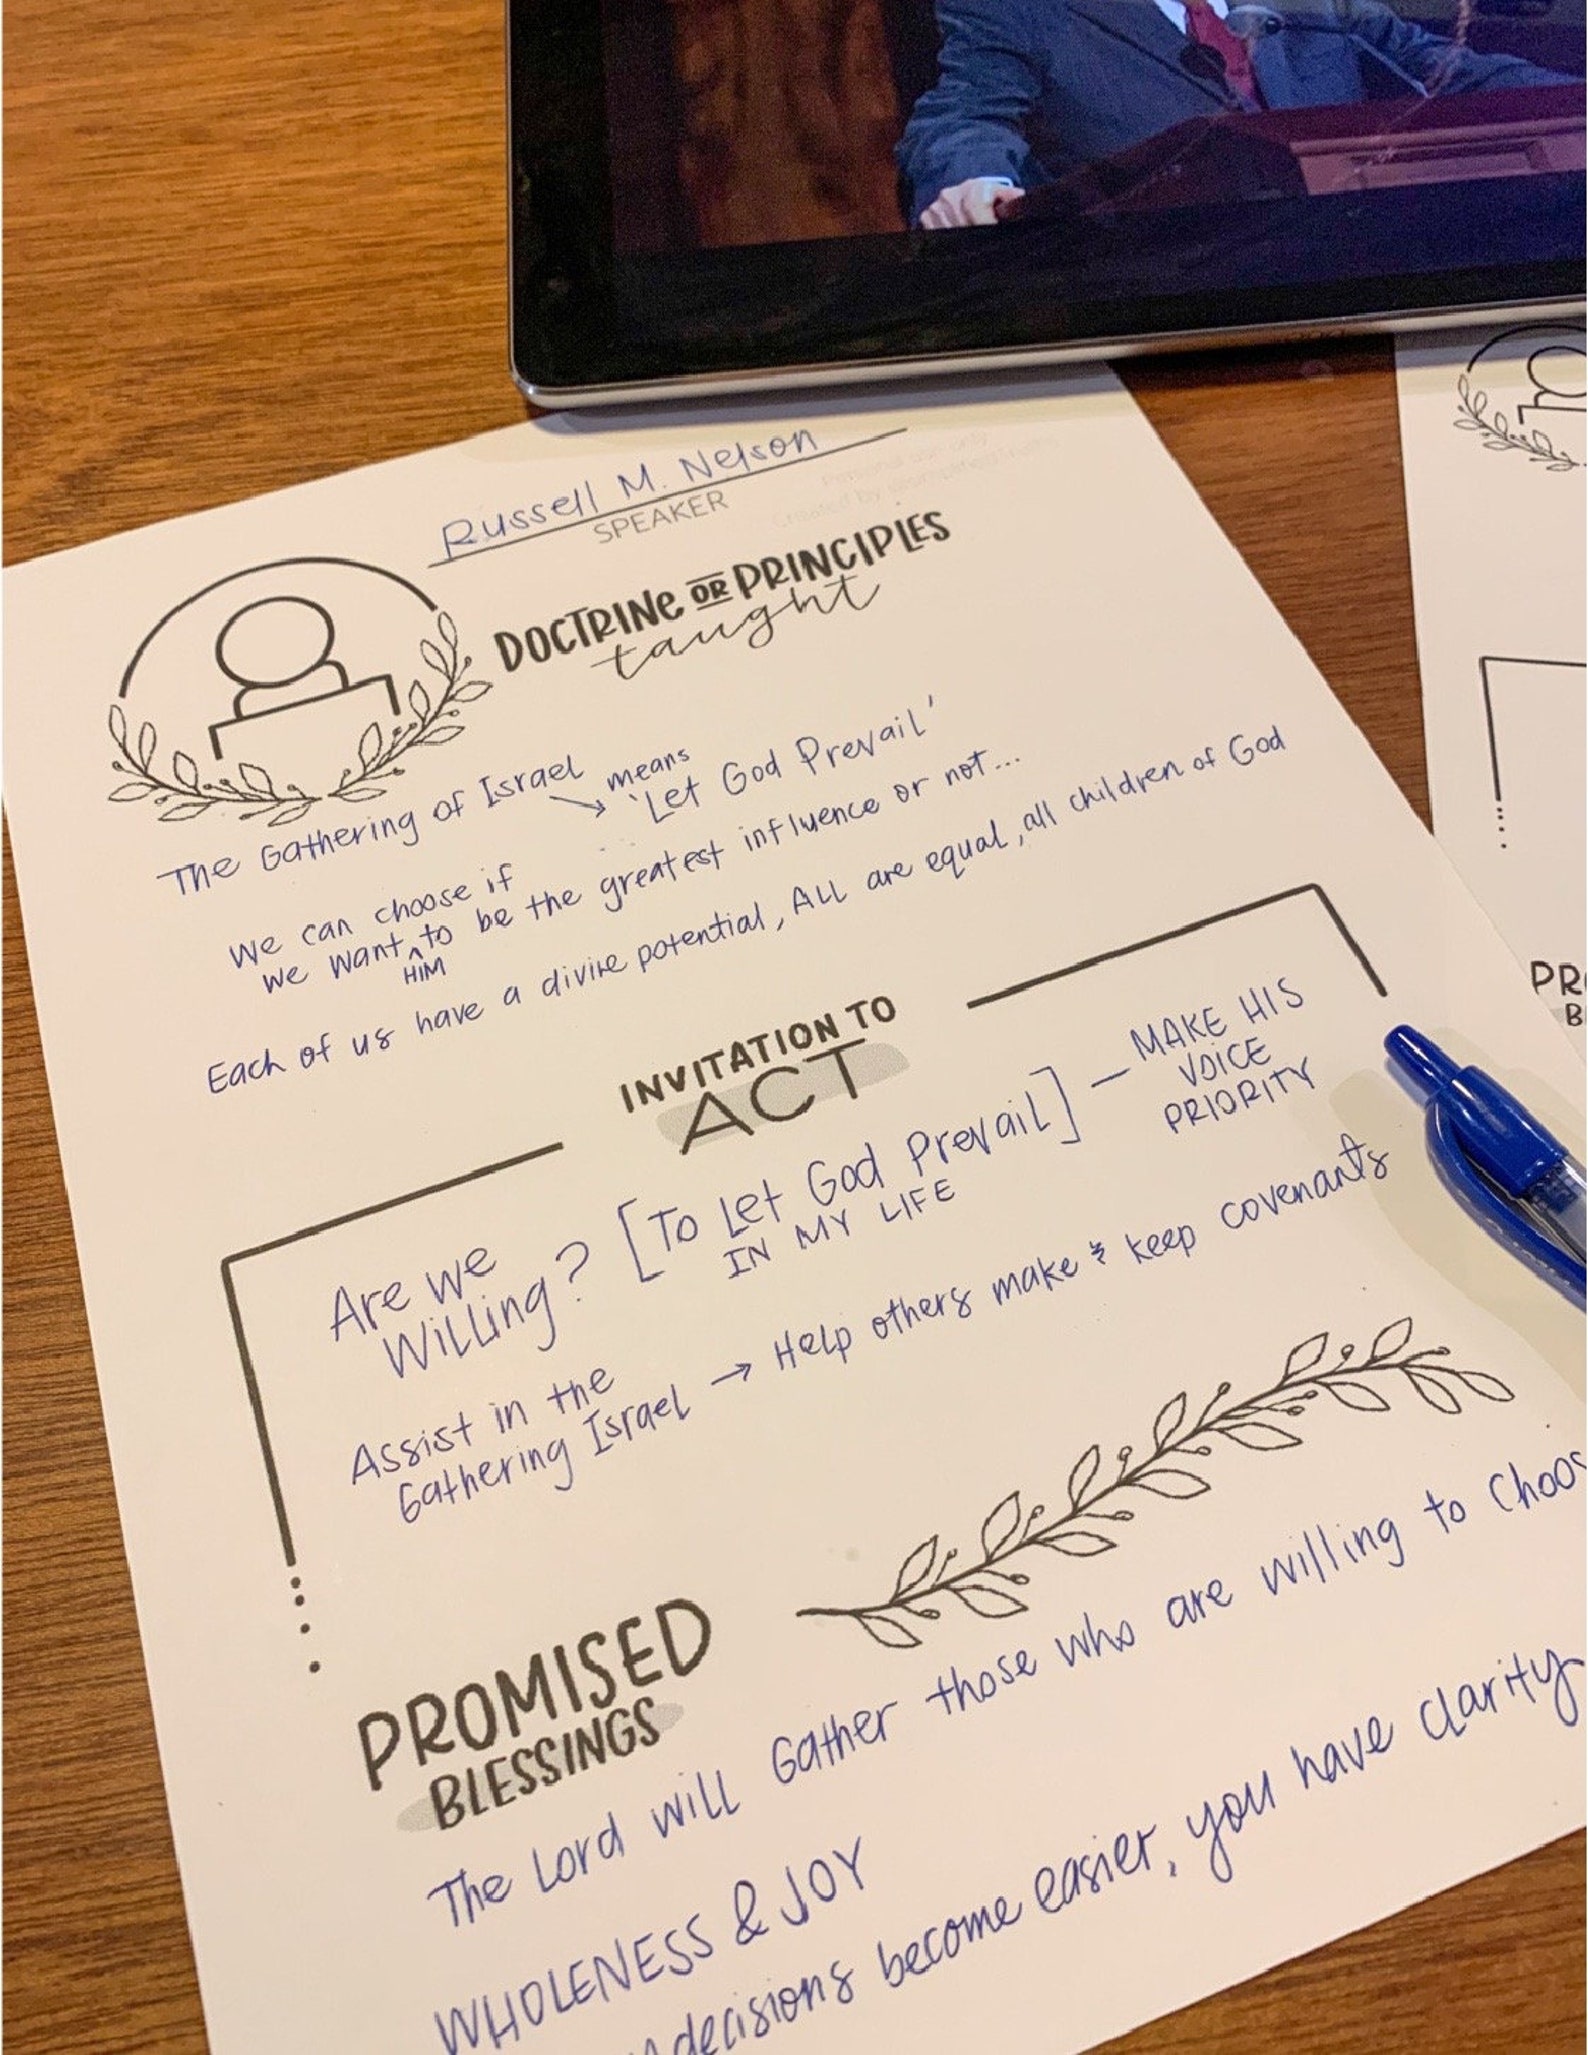 Russell M. Nelson
SPEAKER
DOCTRINE OR PRINCIPLES
taught
The Gathering of Israel means
'Let God Prevail'
We can choose if
we want to be the greatest influence or not...
HIM
Each of us have a divine potential, ALL are equal, all children of God
INVITATION TO
ACT
Are we
Willing? [To Let God Prevail] – MAKE HIS
VOICE
PRIORITY
IN MY LIFE
Assist in the
Gathering Israel → Help others make & keep covenants
PROMISED
BLESSINGS
The Lord will Gather those who are willing to
WHOLENESS & JOY
decisions become easier, you have clarity
PR
B